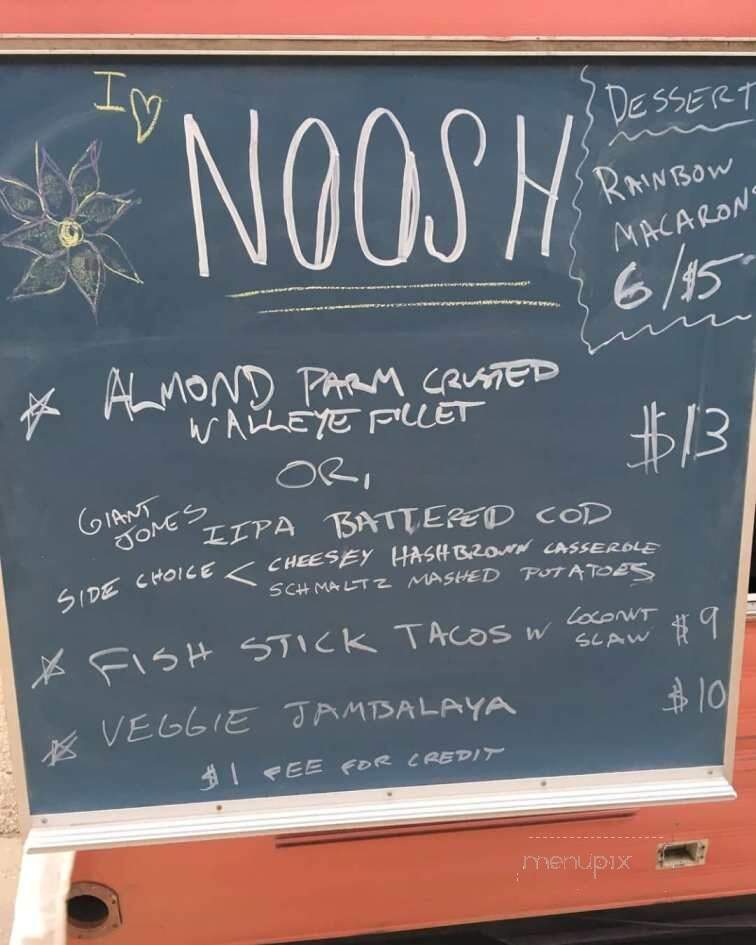 I ♡
NOOSH
DESSERT
RAINBOW
MACARON
6/$5
☆ ALMOND PARM CRUSTED
WALLEYE FILLET
$13
OR,
GIANT
JONES IIPA BATTERED COD
SIDE CHOICE < CHEESEY HASHBROWN CASSEROLE
SCHMALTZ MASHED POTATOES
☆ FISH STICK TACOS W COCONUT
SLAW $9
☆ VEGGIE JAMBALAYA $10
$1 FEE FOR CREDIT
menupix